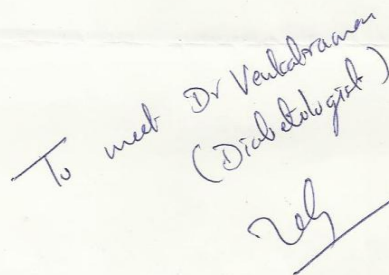 To meet Dr Venkatraman
(Diabetologist)